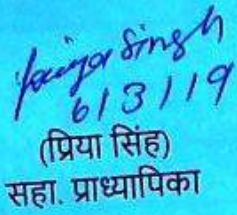 Priya Singh
6/3/19
(प्रिया सिंह)
सहा. प्राध्यापिका